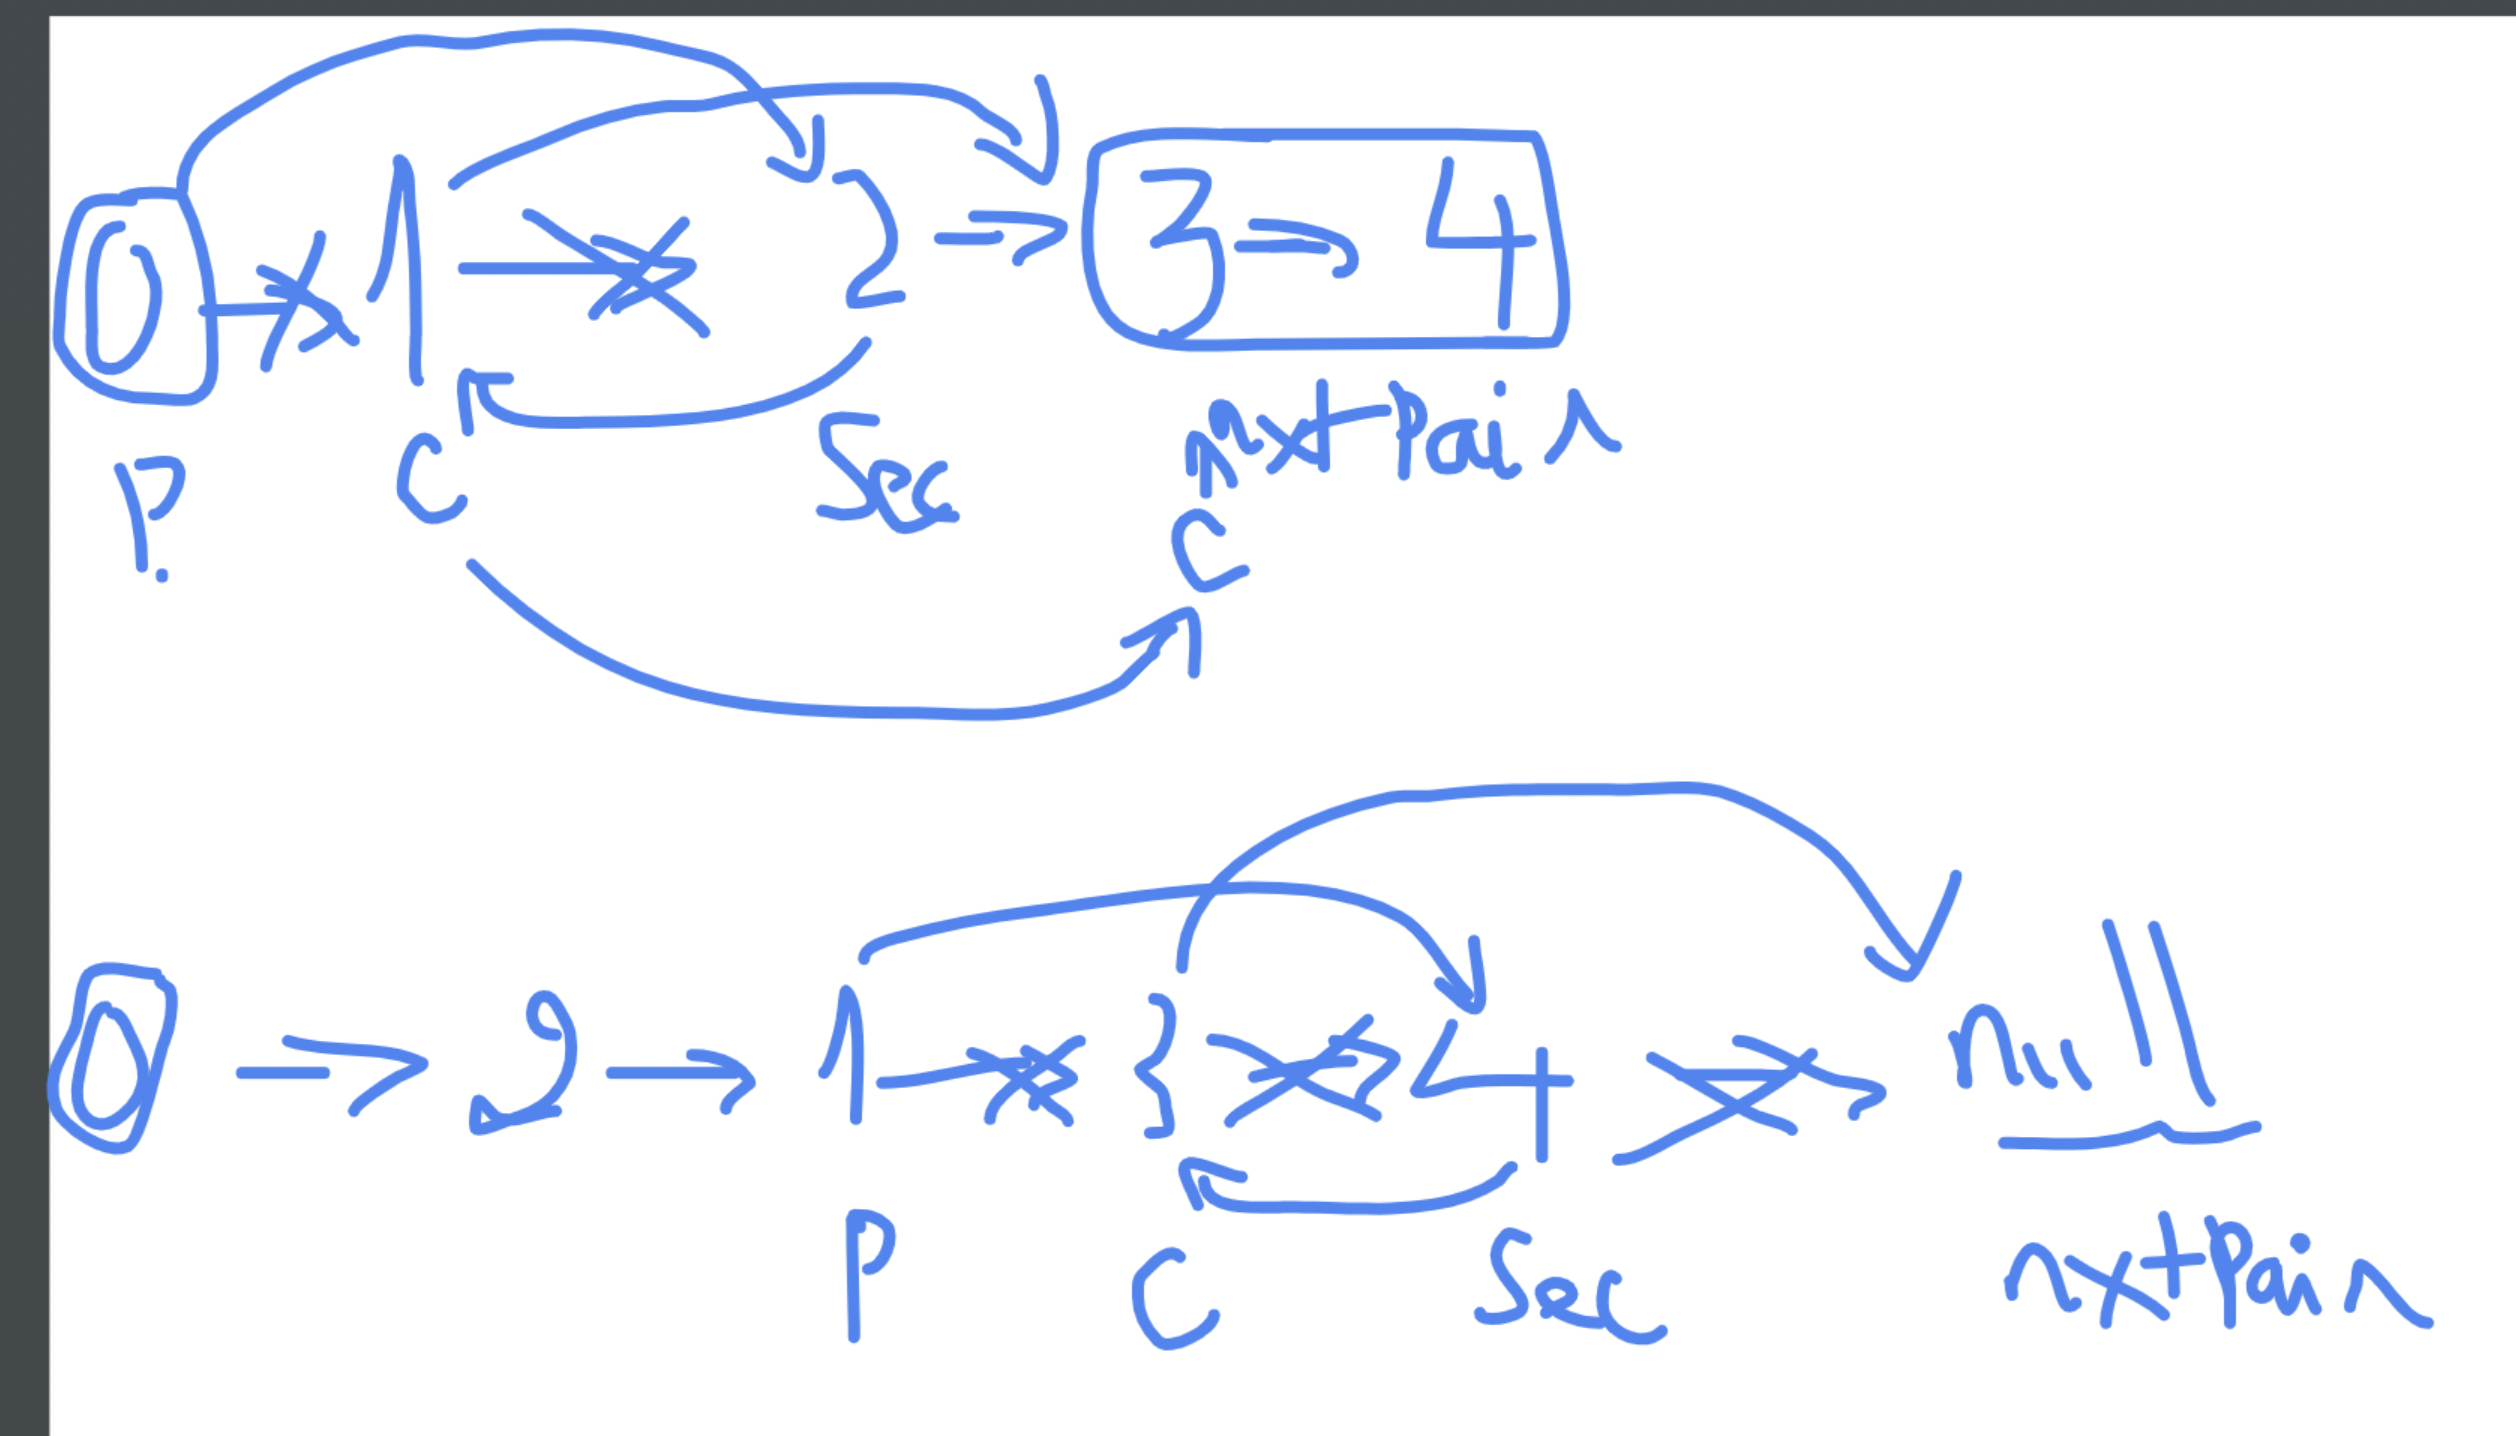 0 → 1 → 2 ⇒ 3 ⇒ 4
P. C Sec nxtPair
C
0 → 2 → 1 → 3 → 4 → null
P C Sec nxtPair